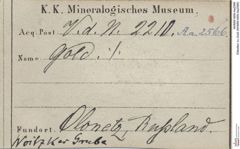 K. K. Mineralogisches Museum.
Acq. Post. V.d.N. 2210. Aa.2566
Name: Gold ·/.
Fundort: Olonetz, Russland.
Woitzker Grube